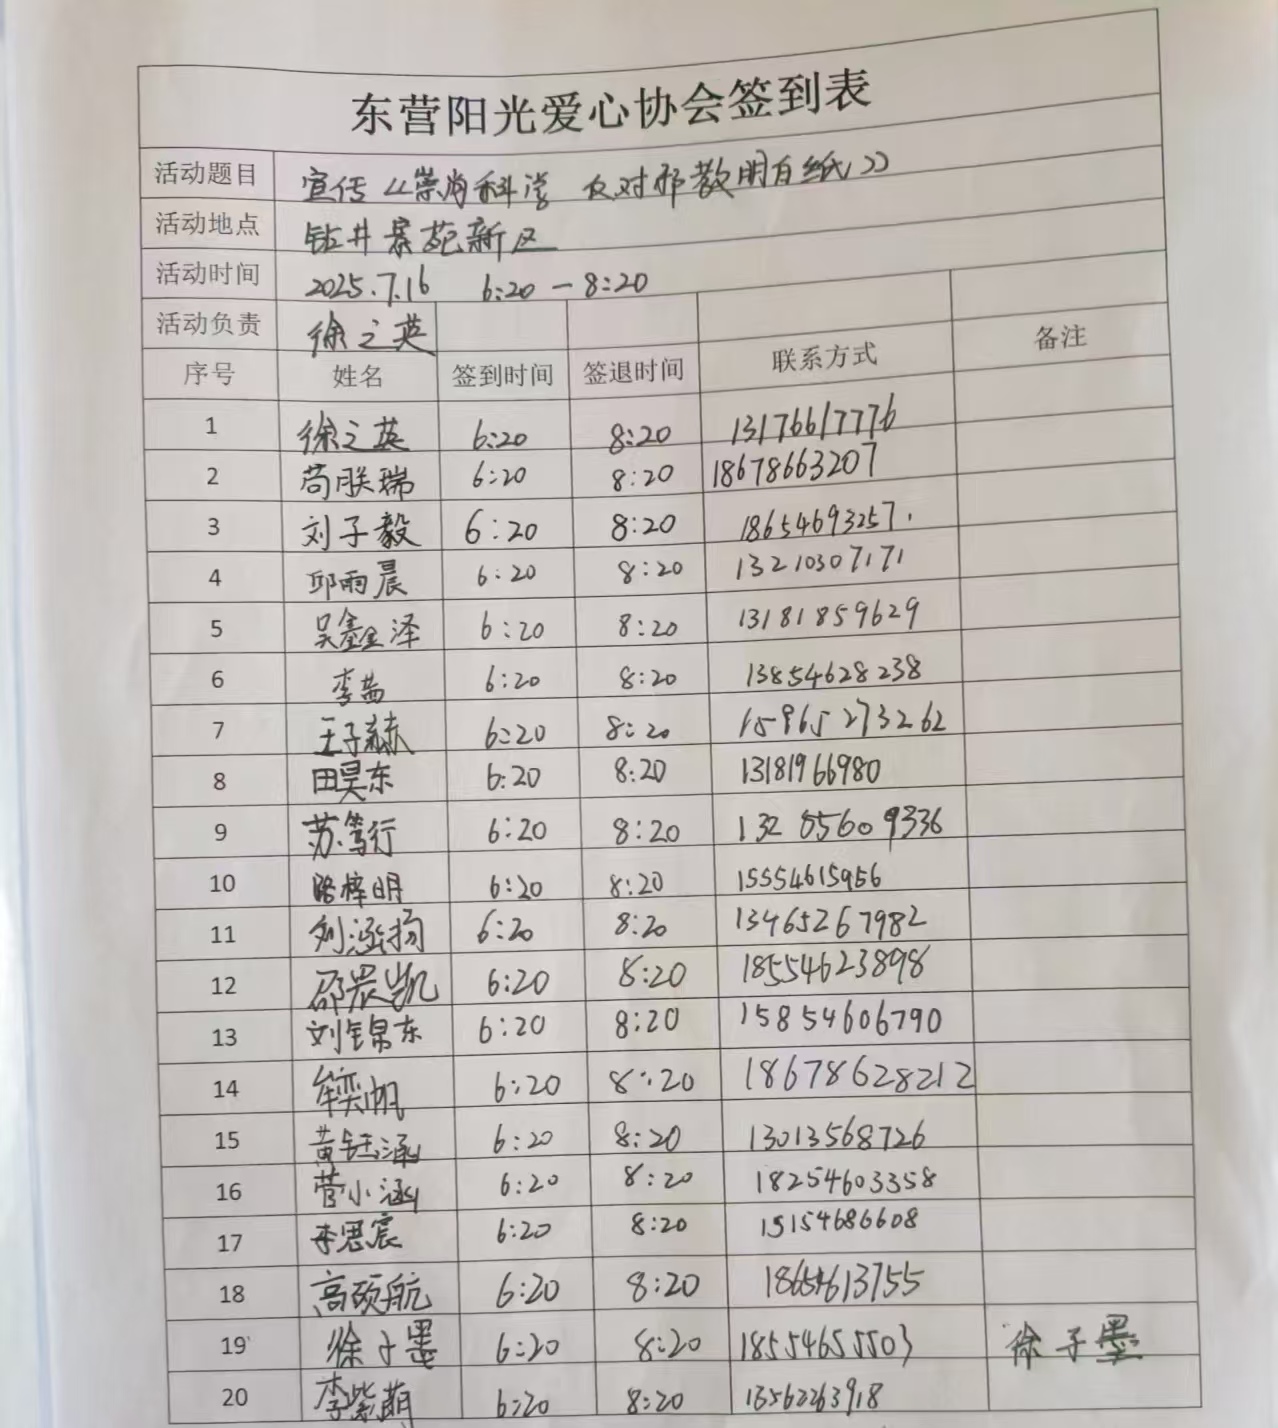 东营阳光爱心协会签到表
活动题目 宣传《崇尚科学 反对邪教明白纸》
活动地点 钻井景苑新区
活动时间 2025.7.16 6:20-8:20
活动负责 徐之英
序号 姓名 签到时间 签退时间 联系方式 备注
1 徐之英 6:20 8:20 13176617776
2 苟联瑞 6:20 8:20 18678663207
3 刘子毅 6:20 8:20 18654693257.
4 邱雨晨 6:20 8:20 13210307171
5 吴鑫泽 6:20 8:20 13181859629
6 李茜 6:20 8:20 13854628238
7 王子赫 6:20 8:20 15965273262
8 田昊东 6:20 8:20 13181966980
9 苏笃行 6:20 8:20
10 梓明 6:20 8:20 15554615956
11 刘涵扬 6:20 8:20 13465267982
12 邵晨凯 6:20 8:20 18554623898
13 刘锦东 6:20 8:20 15854606790
14 牟奕帆 6:20 8:20 18678628212
15 黄钰涵 6:20 8:20 13013568726
16 菅小涵 6:20 8:20 18254603358
17 李思宸 6:20 8:20 15154686608
18 高硕航 6:20 8:20 18654613755
19 徐子墨 6:20 8:20 18554655503 徐子墨
20 李紫萌 6:20 8:20 13562263918